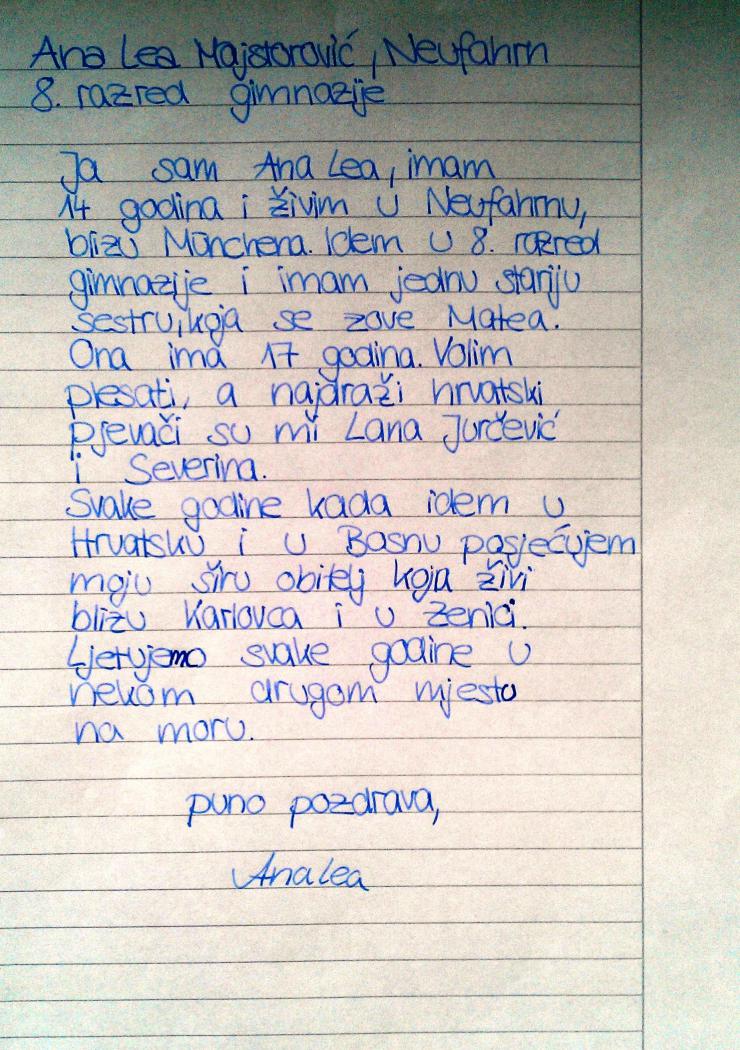 Ana Lea Majstorović, Neufahrn
8. razred gimnazije
Ja sam Ana Lea, imam
14 godina i živim u Neufahrnu,
blizu Münchena. Idem u 8. razred
gimnazije i imam jednu stariju
sestru, koja se zove Matea.
Ona ima 17 godina. Volim
plesati, a najdraži hrvatski
pjevači su mi Lana Jurčević
i Severina.
Svake godine kada idem u
Hrvatsku i u Bosnu posjećujem
moju širu obitelj koja živi
blizu Karlovca i u Zenici.
Ljetujemo svake godine u
nekom drugom mjestu
na moru.
puno pozdrava,
Ana Lea